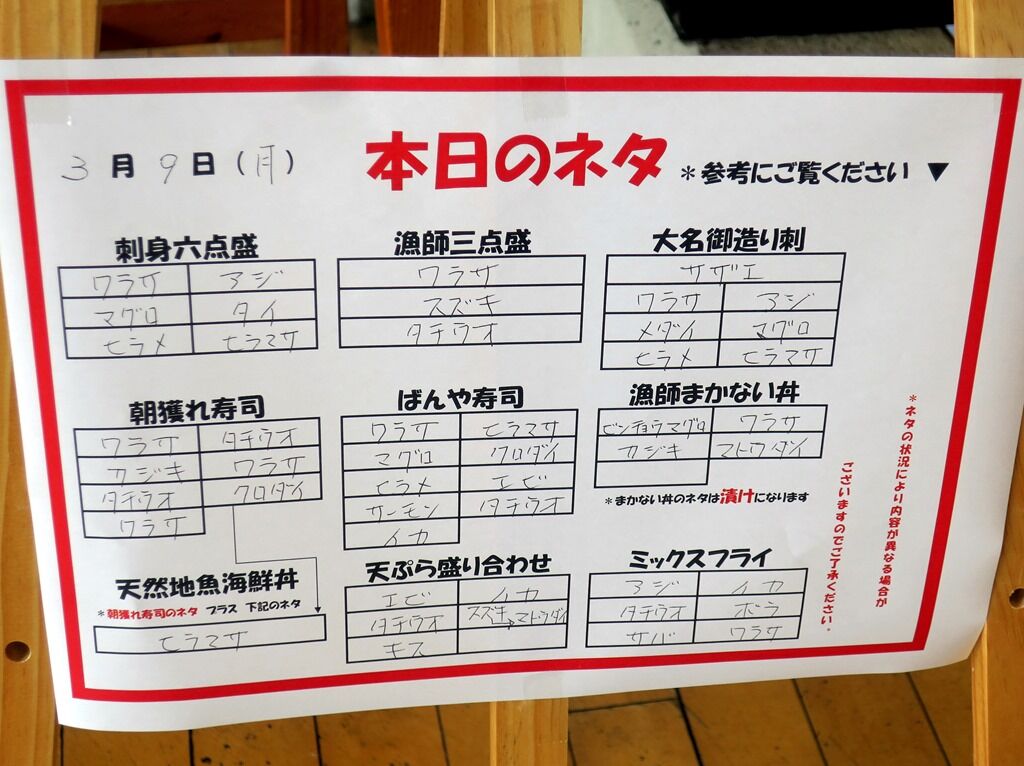 3月9日(月) 本日のネタ *参考にご覧ください ▼
刺身六点盛
ワラサ アジ
マグロ タイ
ヒラメ ヒラマサ
漁師三点盛
ワラサ
スズキ
タチウオ
大名御造り刺
サザエ
ワラサ アジ
メダイ マグロ
ヒラメ ヒラマサ
朝獲れ寿司
ワラサ タチウオ
カジキ ワラサ
タチウオ クロダイ
ワラサ
ばんや寿司
ワラサ ヒラマサ
マグロ クロダイ
ヒラメ エビ
サーモン タチウオ
イカ
漁師まかない丼
ビンチョウマグロ ワラサ
カジキ マトウダイ
*まかない丼のネタは漬けになります
天然地魚海鮮丼
*朝獲れ寿司のネタ プラス 下記のネタ
ヒラマサ
天ぷら盛り合わせ
エビ イカ
タチウオ スズキ マトウダイ
キス
ミックスフライ
アジ イカ
タチウオ ボラ
サバ ワラサ
*ネタの状況により内容が異なる場合が
ございますのでご了承ください。